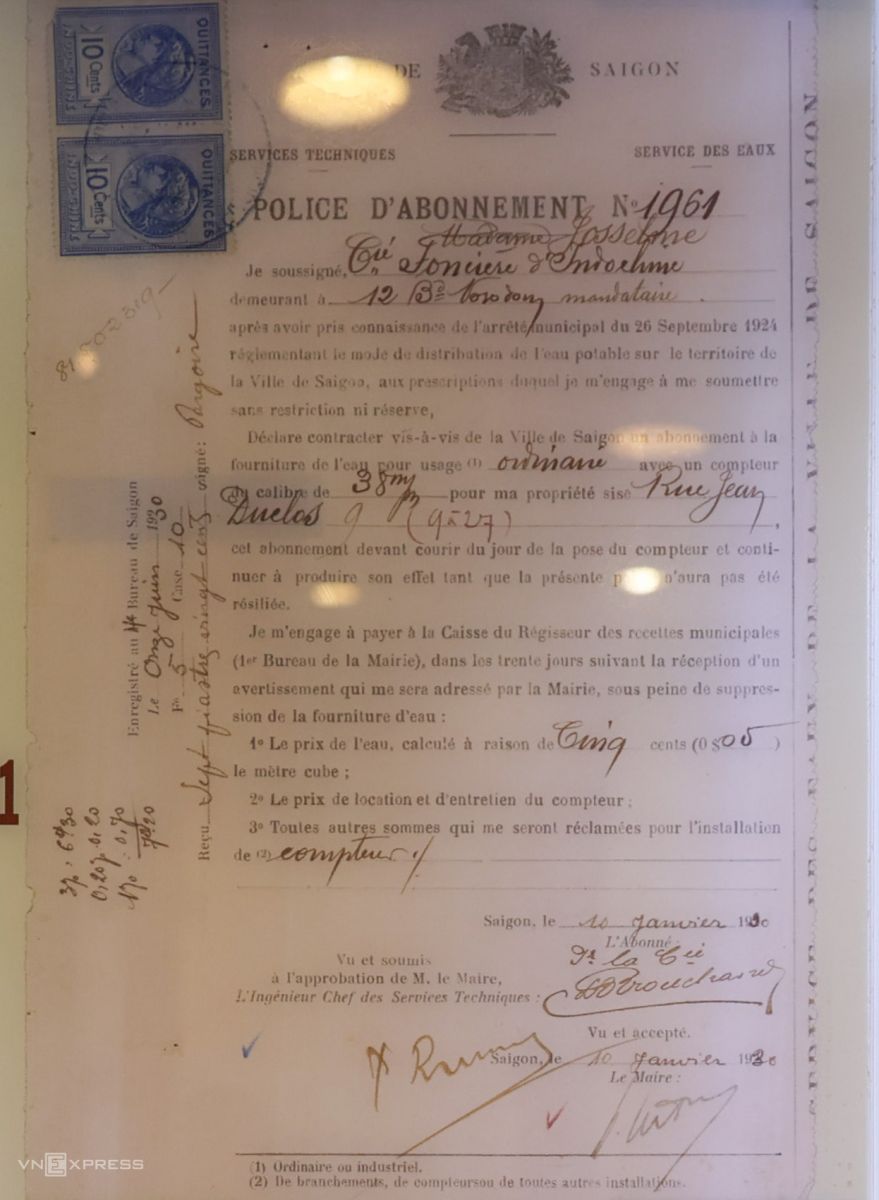 DE SAIGON
SERVICES TECHNIQUES
SERVICE DES EAUX
POLICE D'ABONNEMENT No 1961
Madame Josseline
Je soussigné, Cie Foncière d'Indochine
demeurant à 12 Bd Norodom mandataire.
après avoir pris connaissance de l'arrêté municipal du 26 Septembre 1924
réglementant le mode de distribution de l'eau potable sur le territoire de
la Ville de Saigon, aux prescriptions duquel je m'engage à me soumettre
sans restriction ni réserve,
Déclare contracter vis-à-vis de la Ville de Saigon un abonnement à la
fourniture de l'eau pour usage (1) ordinaire avec un compteur
du calibre de 38 pour ma propriété sise Rue Jean
Duclos 9 (9 à 27),
cet abonnement devant courir du jour de la pose du compteur et conti-
nuer à produire son effet tant que la présente n'aura pas été
résiliée.
Je m'engage à payer à la Caisse du Régisseur des recettes municipales
(1er Bureau de la Mairie), dans les trente jours suivant la réception d'un
avertissement qui me sera adressé par la Mairie, sous peine de suppres-
sion de la fourniture d'eau :
1o Le prix de l'eau, calculé à raison de Cinq cents (0 $ 05)
le mètre cube ;
2o Le prix de location et d'entretien du compteur ;
3o Toutes autres sommes qui me seront réclamées pour l'installation
de (2) compteur
Saigon, le 10 Janvier 1930
L'Abonné :
Pr la Cie
Vu et soumis
à l'approbation de M. le Maire,
L'Ingénieur Chef des Services Techniques :
Vu et accepté.
Saigon, le 10 Janvier 1930
Le Maire :
(1) Ordinaire ou industriel.
(2) De branchements, de compteursou de toutes autres installations.
QUITTANCES
10 Cents
INDOCHINE
QUITTANCES
10 Cents
INDOCHINE
Enregistré au Bureau de Saigon
Le Onze Juin 1930
Fo 5 Case 10
Reçu Sept piastres vingt cents signé:
SERVICE DES EAUX DE LA VILLE DE SAIGON
1
VNEXPRESS